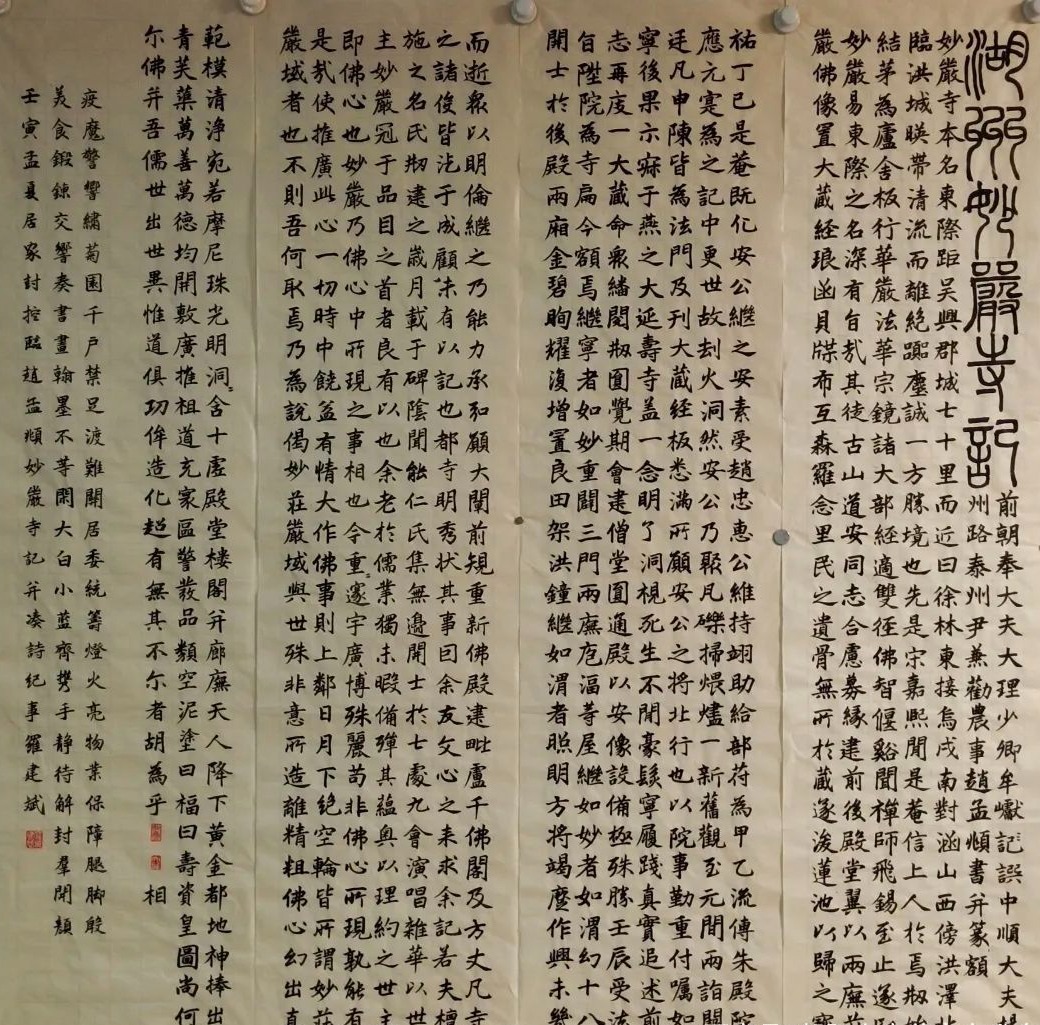 湖州妙嚴寺記
前朝奉大夫大理少卿牟巘記譔中順大夫揚
州路泰州尹兼勸農事趙孟頫書并篆額
妙嚴寺本名東際距吳興郡城七十里而近曰徐林東接烏戍南對涵山西傍洪澤北
臨洪城暎帶清流而離絕嚻塵誠一方勝境也先是宋嘉熙間是菴信上人於焉刱始
結茅為廬舍板行華嚴法華宗鏡諸大部經適雙徑佛智偃谿聞禪師飛錫至止遂
妙嚴易東際之名深有旨哉其徒古山道安同志合慮募緣建前後殿堂翼以兩廡
嚴佛像置大藏経琅函貝牒布互森羅念里民之遺骨無所於藏遂浚蓮池以歸之寶
祐丁巳是菴既化安公繼之安素受趙忠惠公維持翊助給部苻為甲乙流傳朱殿院
應元寔為之記中更世故刦火洞然安公乃聚凡礫掃煨燼一新舊觀至元間兩詣闕
廷凡申陳皆為法門及刊大藏經板悉滿所願安公之將北行也以院事勤重付囑如
寧後果示寂于燕之大延壽寺蓋一念明了洞視死生不間豪髮寧履踐真實追述前
志再度一大藏命眾繙閱刱圓覺期會建僧堂圓通殿以安像設備極殊勝壬辰受法
旨陞院為寺扁今額焉繼寧者如妙重闢三門兩廡庖湢等屋繼如妙者如渭幻十八
開士於後殿兩廂金碧眴耀復增置良田架洪鐘繼如渭者眧明方將竭麼作興未幾
而逝眾以明倫繼之乃能力承弘願大闡前規重新佛殿建毗盧千佛閣及方丈凡寺
之諸役皆汔于成顧未有以記也都寺明秀狀其事因余友文心之来求余記若夫檀
施之名氏刱建之歲月載于碑陰聞能仁氏集無邊開士於七處九會演唱雜華以世
主妙嚴冠于品目之首者良有以也余老於儒業獨未暇備殫其蘊奥以理約之世主
即佛心也妙嚴乃佛心中所現之事相也今重々邃宇廣博殊麗苟非佛心所現孰能有
是哉使推廣此心一切時中饒益有情大作佛事則上鄰日月下絕空輪皆所謂妙莊
嚴域者也不則吾何取焉乃為說偈妙莊嚴域與世殊非意所造離精粗佛心幻出真
範模清淨宛若摩尼珠光明洞々含十虛殿堂樓閣并廊廡天人降下黃金都地神捧出
青芙蕖萬善萬德均開敷廣推祖道充家區警發品類空泥塗曰福曰壽資皇圖尚何
尒佛并吾儒世出世異惟道俱功侔造化超有無其不尒者胡為乎相
疫魔警響繡菊園千戶禁足渡難關居委統籌燈火亮物業保障腿脚般
美食鍛鍊交響奏書畫翰墨不等閑大白小藍齊攜手静待解封羣開顏
壬寅孟夏居家封控臨趙孟頫妙嚴寺記并湊詩紀事羅建斌